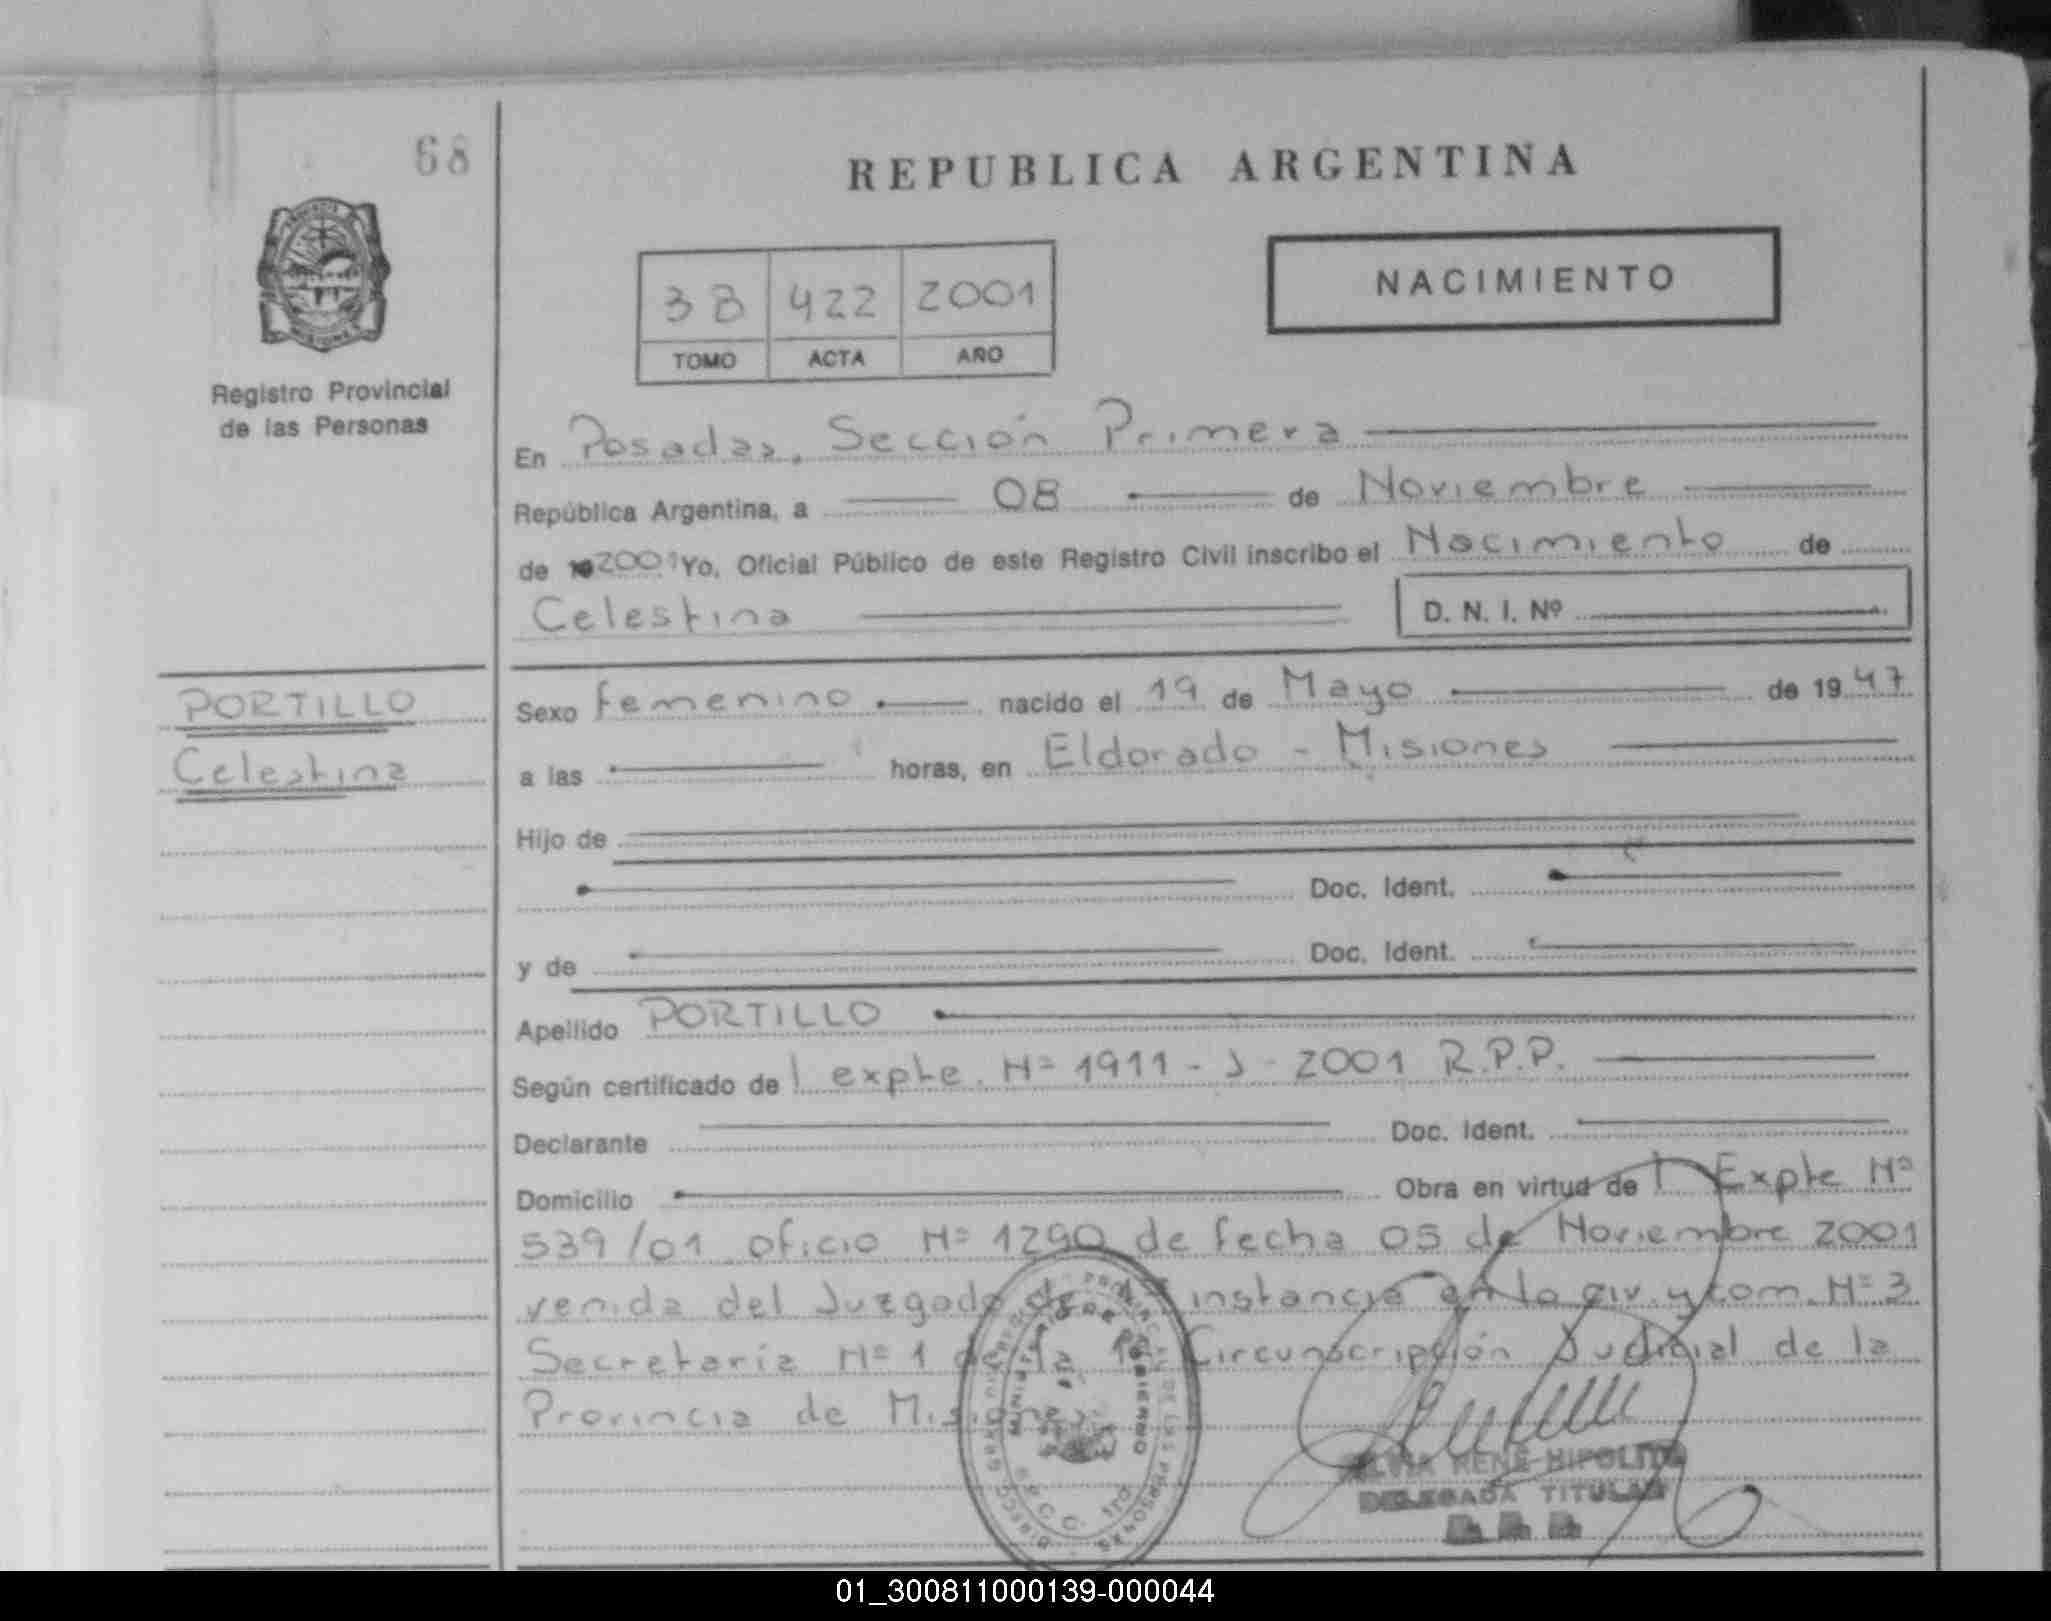 68
REPUBLICA ARGENTINA
38 422 2001
TOMO ACTA AÑO
NACIMIENTO
Registro Provincial
de las Personas
En Posadas, Sección Primera
República Argentina, a 08 de Noviembre
de 19 2001 Yo, Oficial Público de este Registro Civil inscribo el Nacimiento de
Celestina
D. N. I. Nº
PORTILLO
Celestina
Sexo femenino nacido el 19 de Mayo de 19 47
a las horas, en Eldorado - Misiones
Hijo de
Doc. Ident.
y de Doc. Ident.
Apellido PORTILLO
Según certificado de l expte. Nº 1911 - J - 2001 R.P.P.
Declarante Doc. Ident.
Domicilio Obra en virtud de l Expte Nº
539/01 oficio Nº 1290 de fecha 05 de Noviembre 2001
venida del Juzgado de 1ª instancia en lo civ. y com. Nº 3
Secretaría Nº 1 de la 1ª Circunscripción Judicial de la
Provincia de Misiones
MINISTERIO DE GOBIERNO
RENE HIPOLITO
DELEGADA TITULAR
01_300811000139-000044